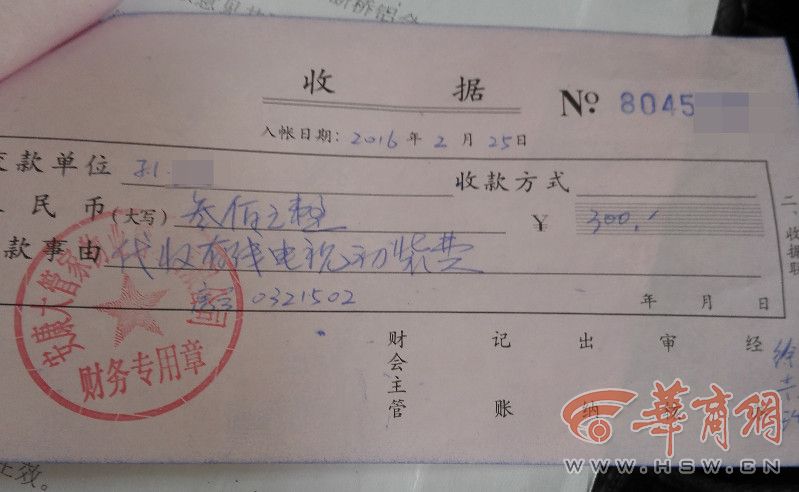 收 据
No. 8045
入帐日期：2016年2月25日
交款单位 孙
收款方式
人民币(大写) 叁佰元整
¥ 300.
收款事由 代收有线电视初装费
0321502
年 月 日
财会主管
记账
出纳
审核
经
安康大管家
财务专用章
二、收据联
华商网
WWW.HSW.CN